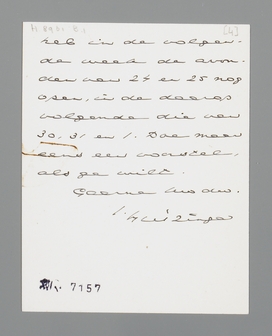 [4]
heb in de volgen-
de week de avon-
den van 24 en 25 nog
open, in de daarop
volgende die van
30, 31 en 1. Doe maar
eens een voorstel,
als ge wilt.
Gaarne
J. Huizinga
7157